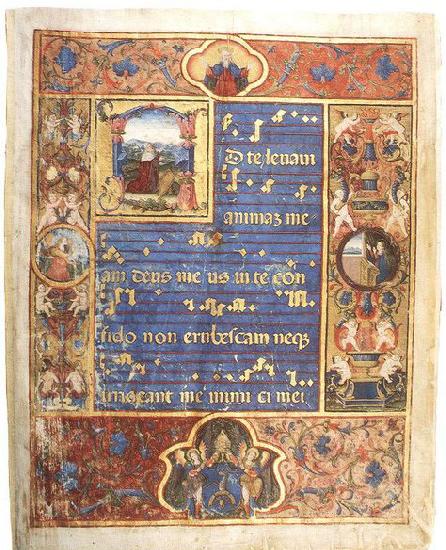 AD te leuaui
animaz me
am deus me us in te con
fido non erubescam neqꝫ
irrideant me inimi ci mei